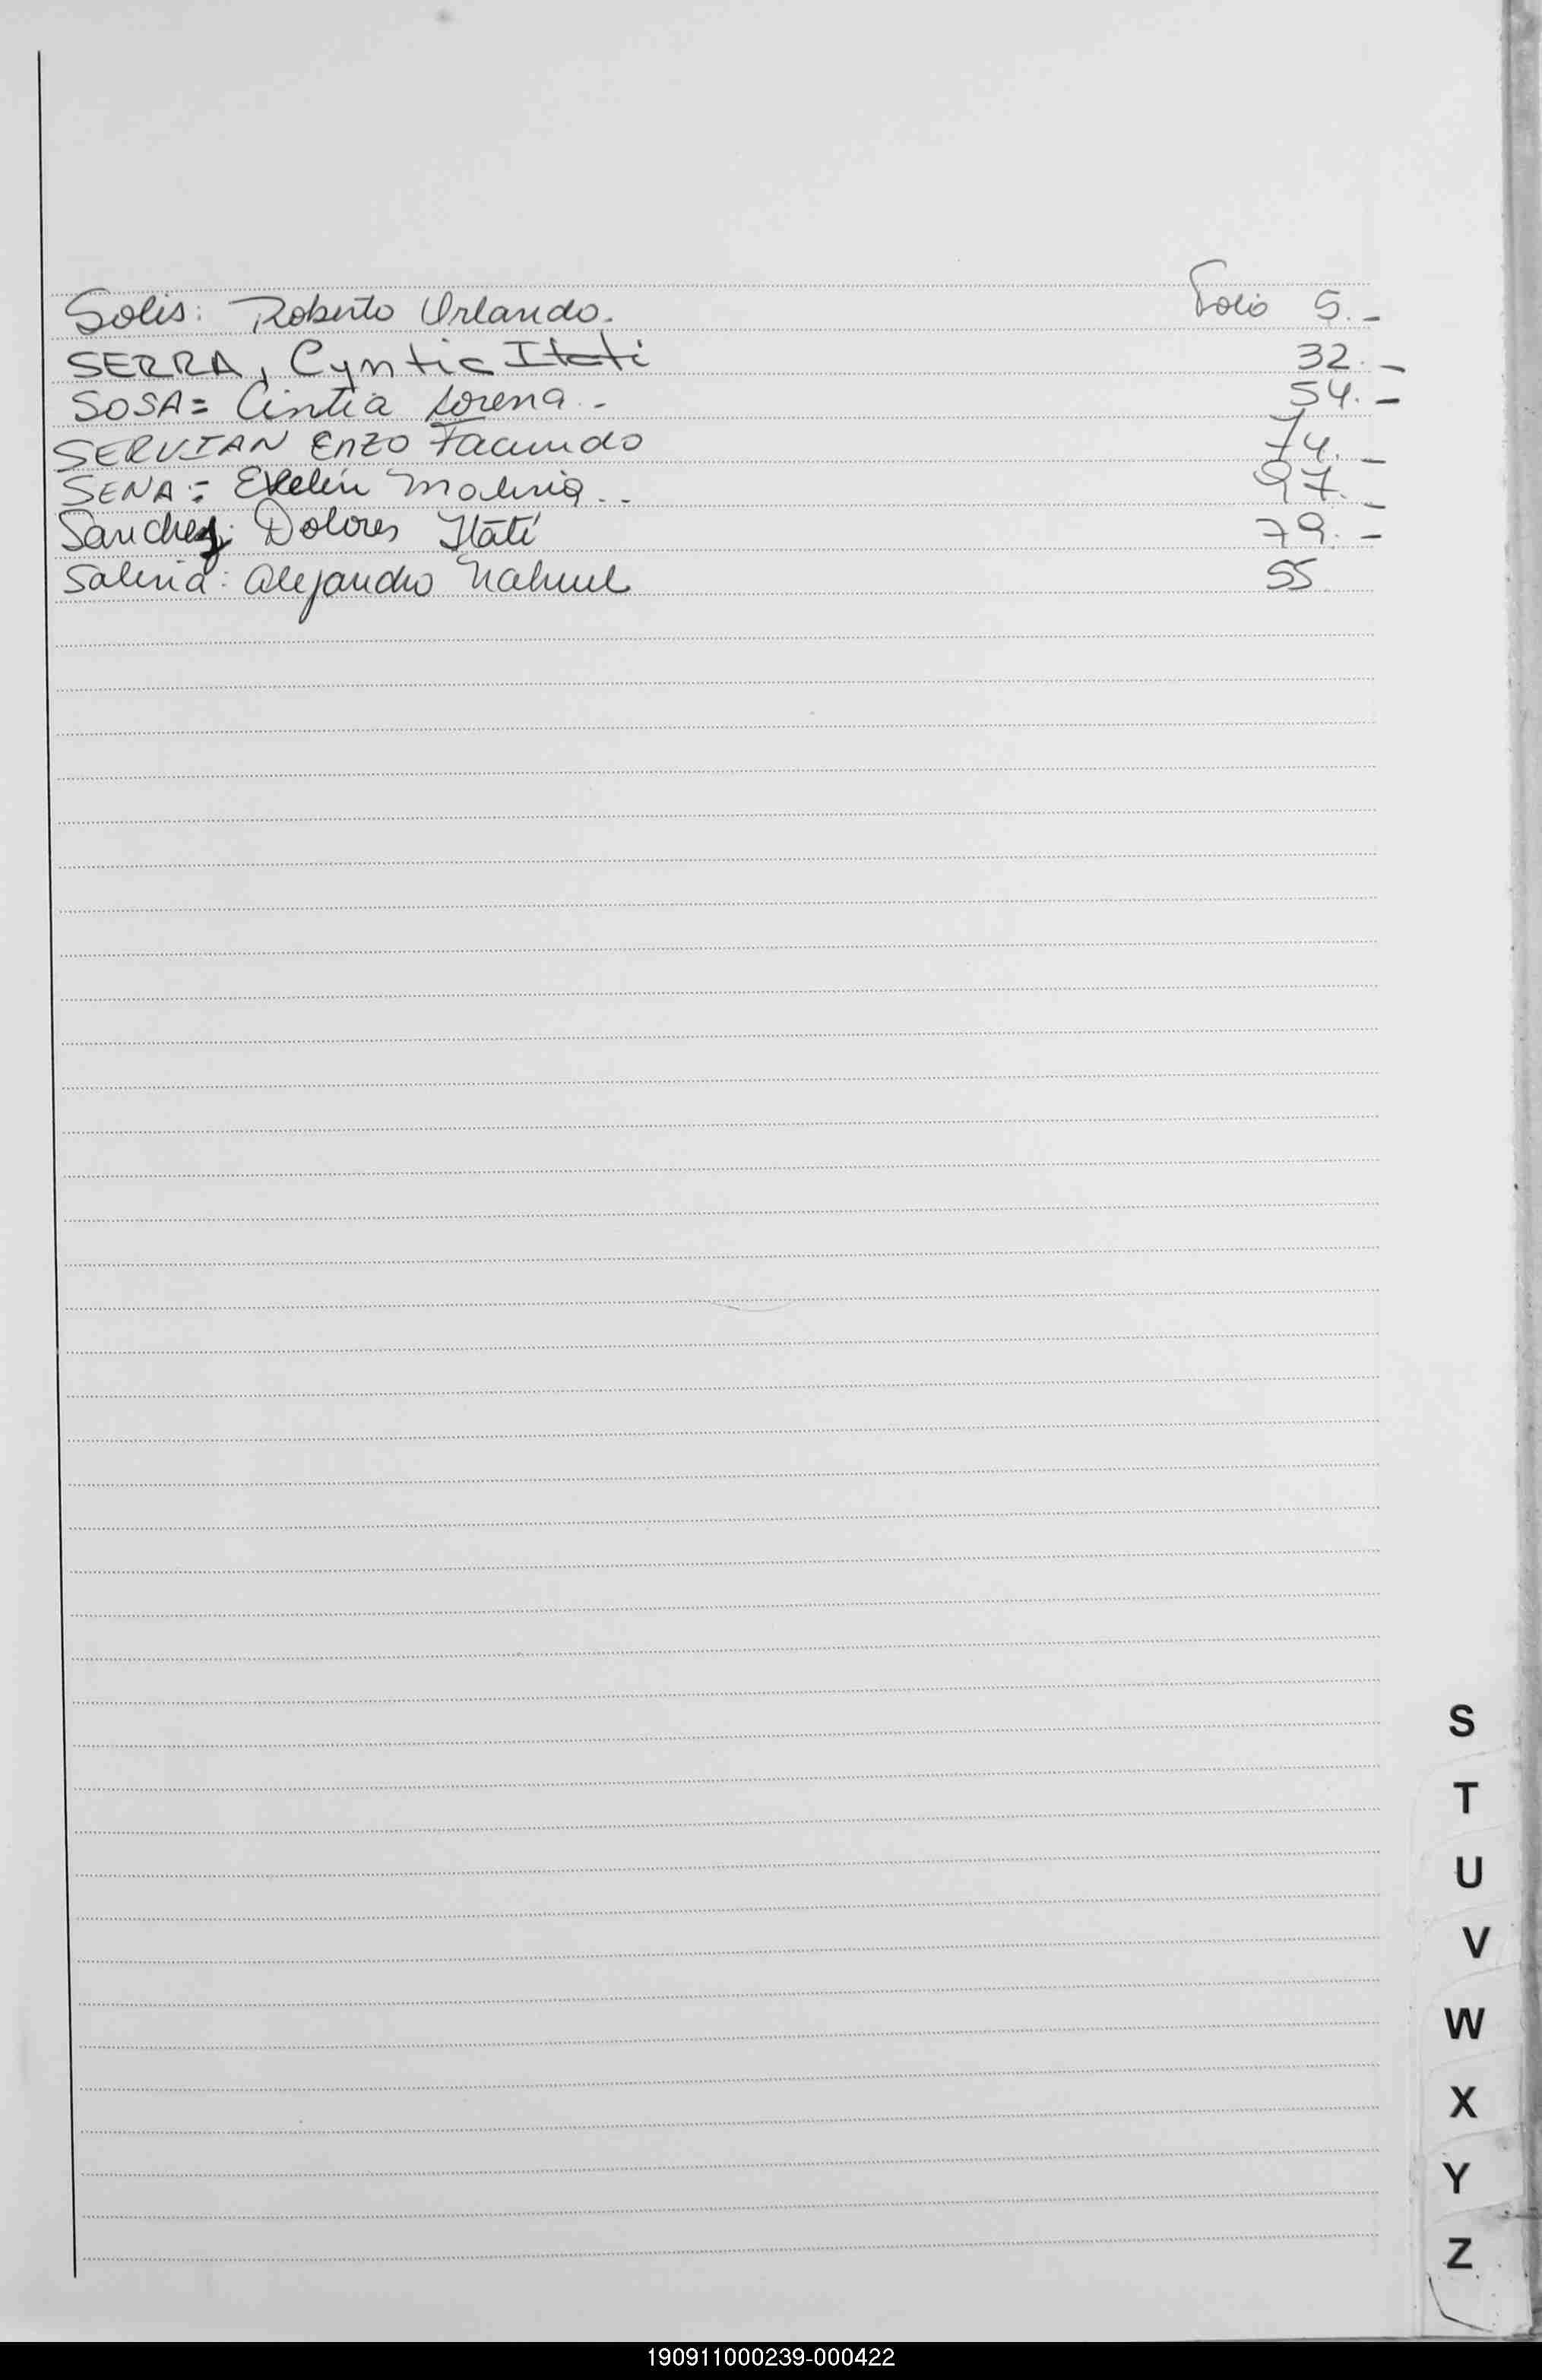 Solis: Roberto Orlando. Folio 5.-
SERRA, Cyntia Itati 32.-
SOSA= Cintia Lorena.- 54.-
SERVIAN Enzo Facundo 74.-
SENA= Evelin 97.-
Sanchez: Dolores Itatí 79.-
Salina: Alejandro Nahuel 55
S
T
U
V
W
X
Y
Z
190911000239-000422